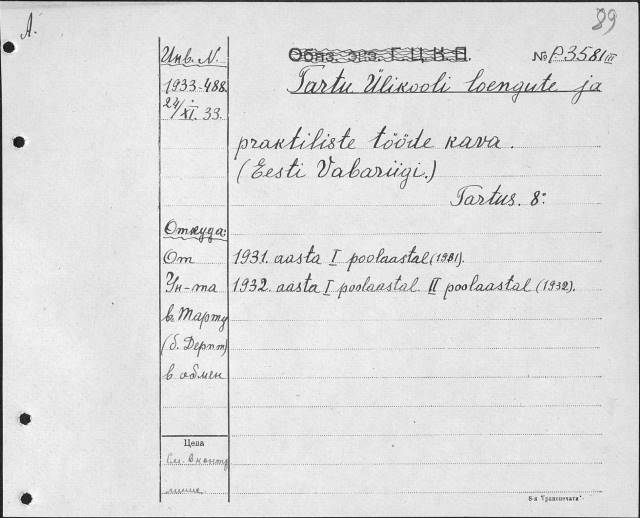 A.
89
Инв. N.
1933-488.
24/XI. 33.
Обяз. экз. Г. Ц. К. П.
№ P3581 III
Tartu Ülikooli loengute ja
praktiliste tööde kava.
(Eesti Vabariigi.)
Tartus. 8:
Откуда:
От
Ун-та
в Тарту
(б. Дерпт)
в обмен
1931. aasta I poolaastal (1931).
1932. aasta I poolaastal. II poolaastal (1932).
Цена
См. в конт
8-я "Транспечати"